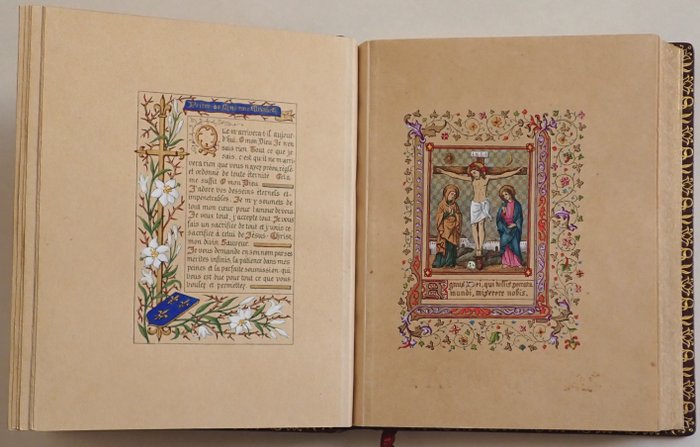 Prière de Madame Elisabeth
Que m'arrivera-t-il aujour-
d'hui, O mon Dieu Je n'en
sais rien Tout ce que je
sais, c'est qu'il ne m'arri-
vera rien que vous n'ayez prévu, réglé
et ordonné de toute éternité Cela
me suffit O mon Dieu
J'adore vos desseins éternels et
impénétrables. Je m'y soumets de
tout mon cœur pour l'amour de vous
Je veux tout, j'accepte tout Je vous
fais un sacrifice de tout et j'unis ce
sacrifice à celui de Jésus-Christ,
mon divin Sauveur.
Je vous demande en son nom par ses
mérites infinis, la patience dans mes
peines et la parfaite soumission qui
vous est due pour tout ce que vous
voulez et permettez.
INRI
Agnus Dei, qui tollis peccata
mundi, miserere nobis.